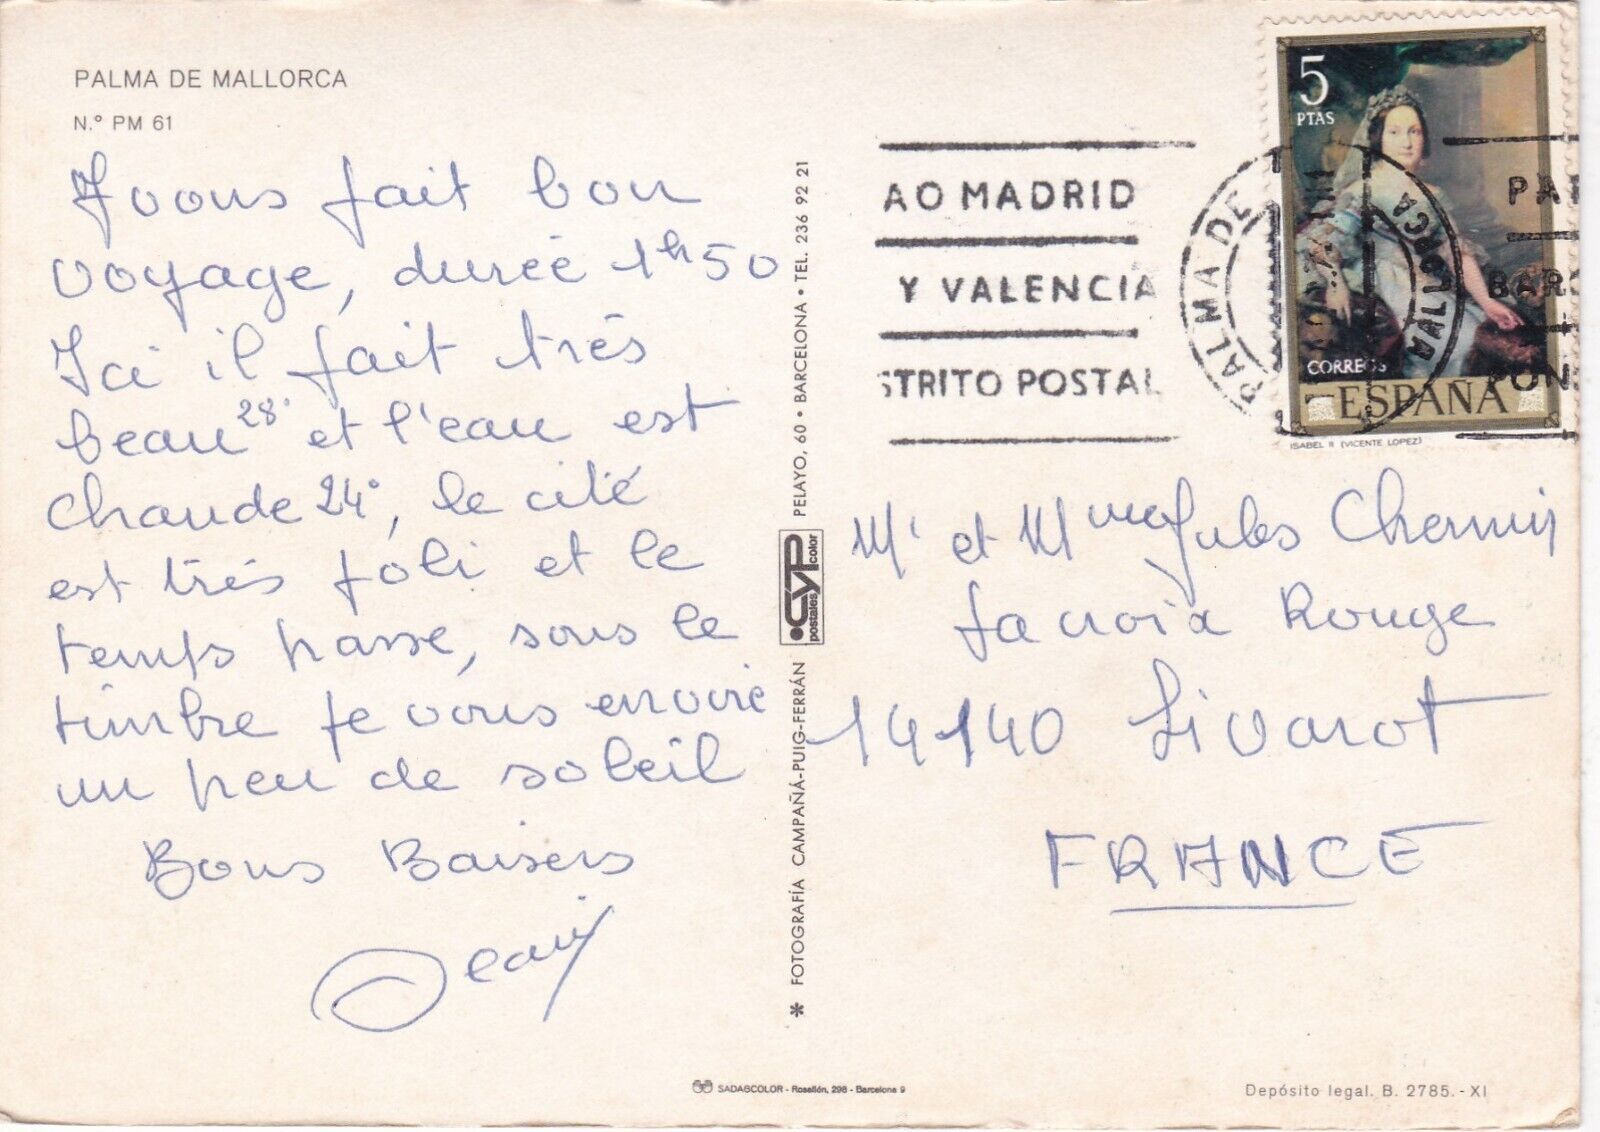 PALMA DE MALLORCA
N.º PM 61
Avons fait bon
voyage, durée 1h50
Ici il fait très
beau 28° et l'eau est
chaude 24°, le cité
est très joli et le
temps passe, sous le
timbre je vous envoie
un peu de soleil
Bons Baisers
PELAYO, 60 • BARCELONA • TEL. 236 92 21
CYP
postales color
* FOTOGRAFÍA CAMPAÑÁ-PUIG-FERRÁN
AO MADRID
Y VALENCIA
STRITO POSTAL
PALMA DE MALLORCA
PAR
BARC
PON
5
PTAS
CORREOS
ESPAÑA
ISABEL II (VICENTE LOPEZ)
Mr et Mme Jules
Lacroix Rouge
14140 Livarot
FRANCE
SADAGCOLOR - Rosellón, 298 - Barcelona 9
Depósito legal. B. 2785. - XI